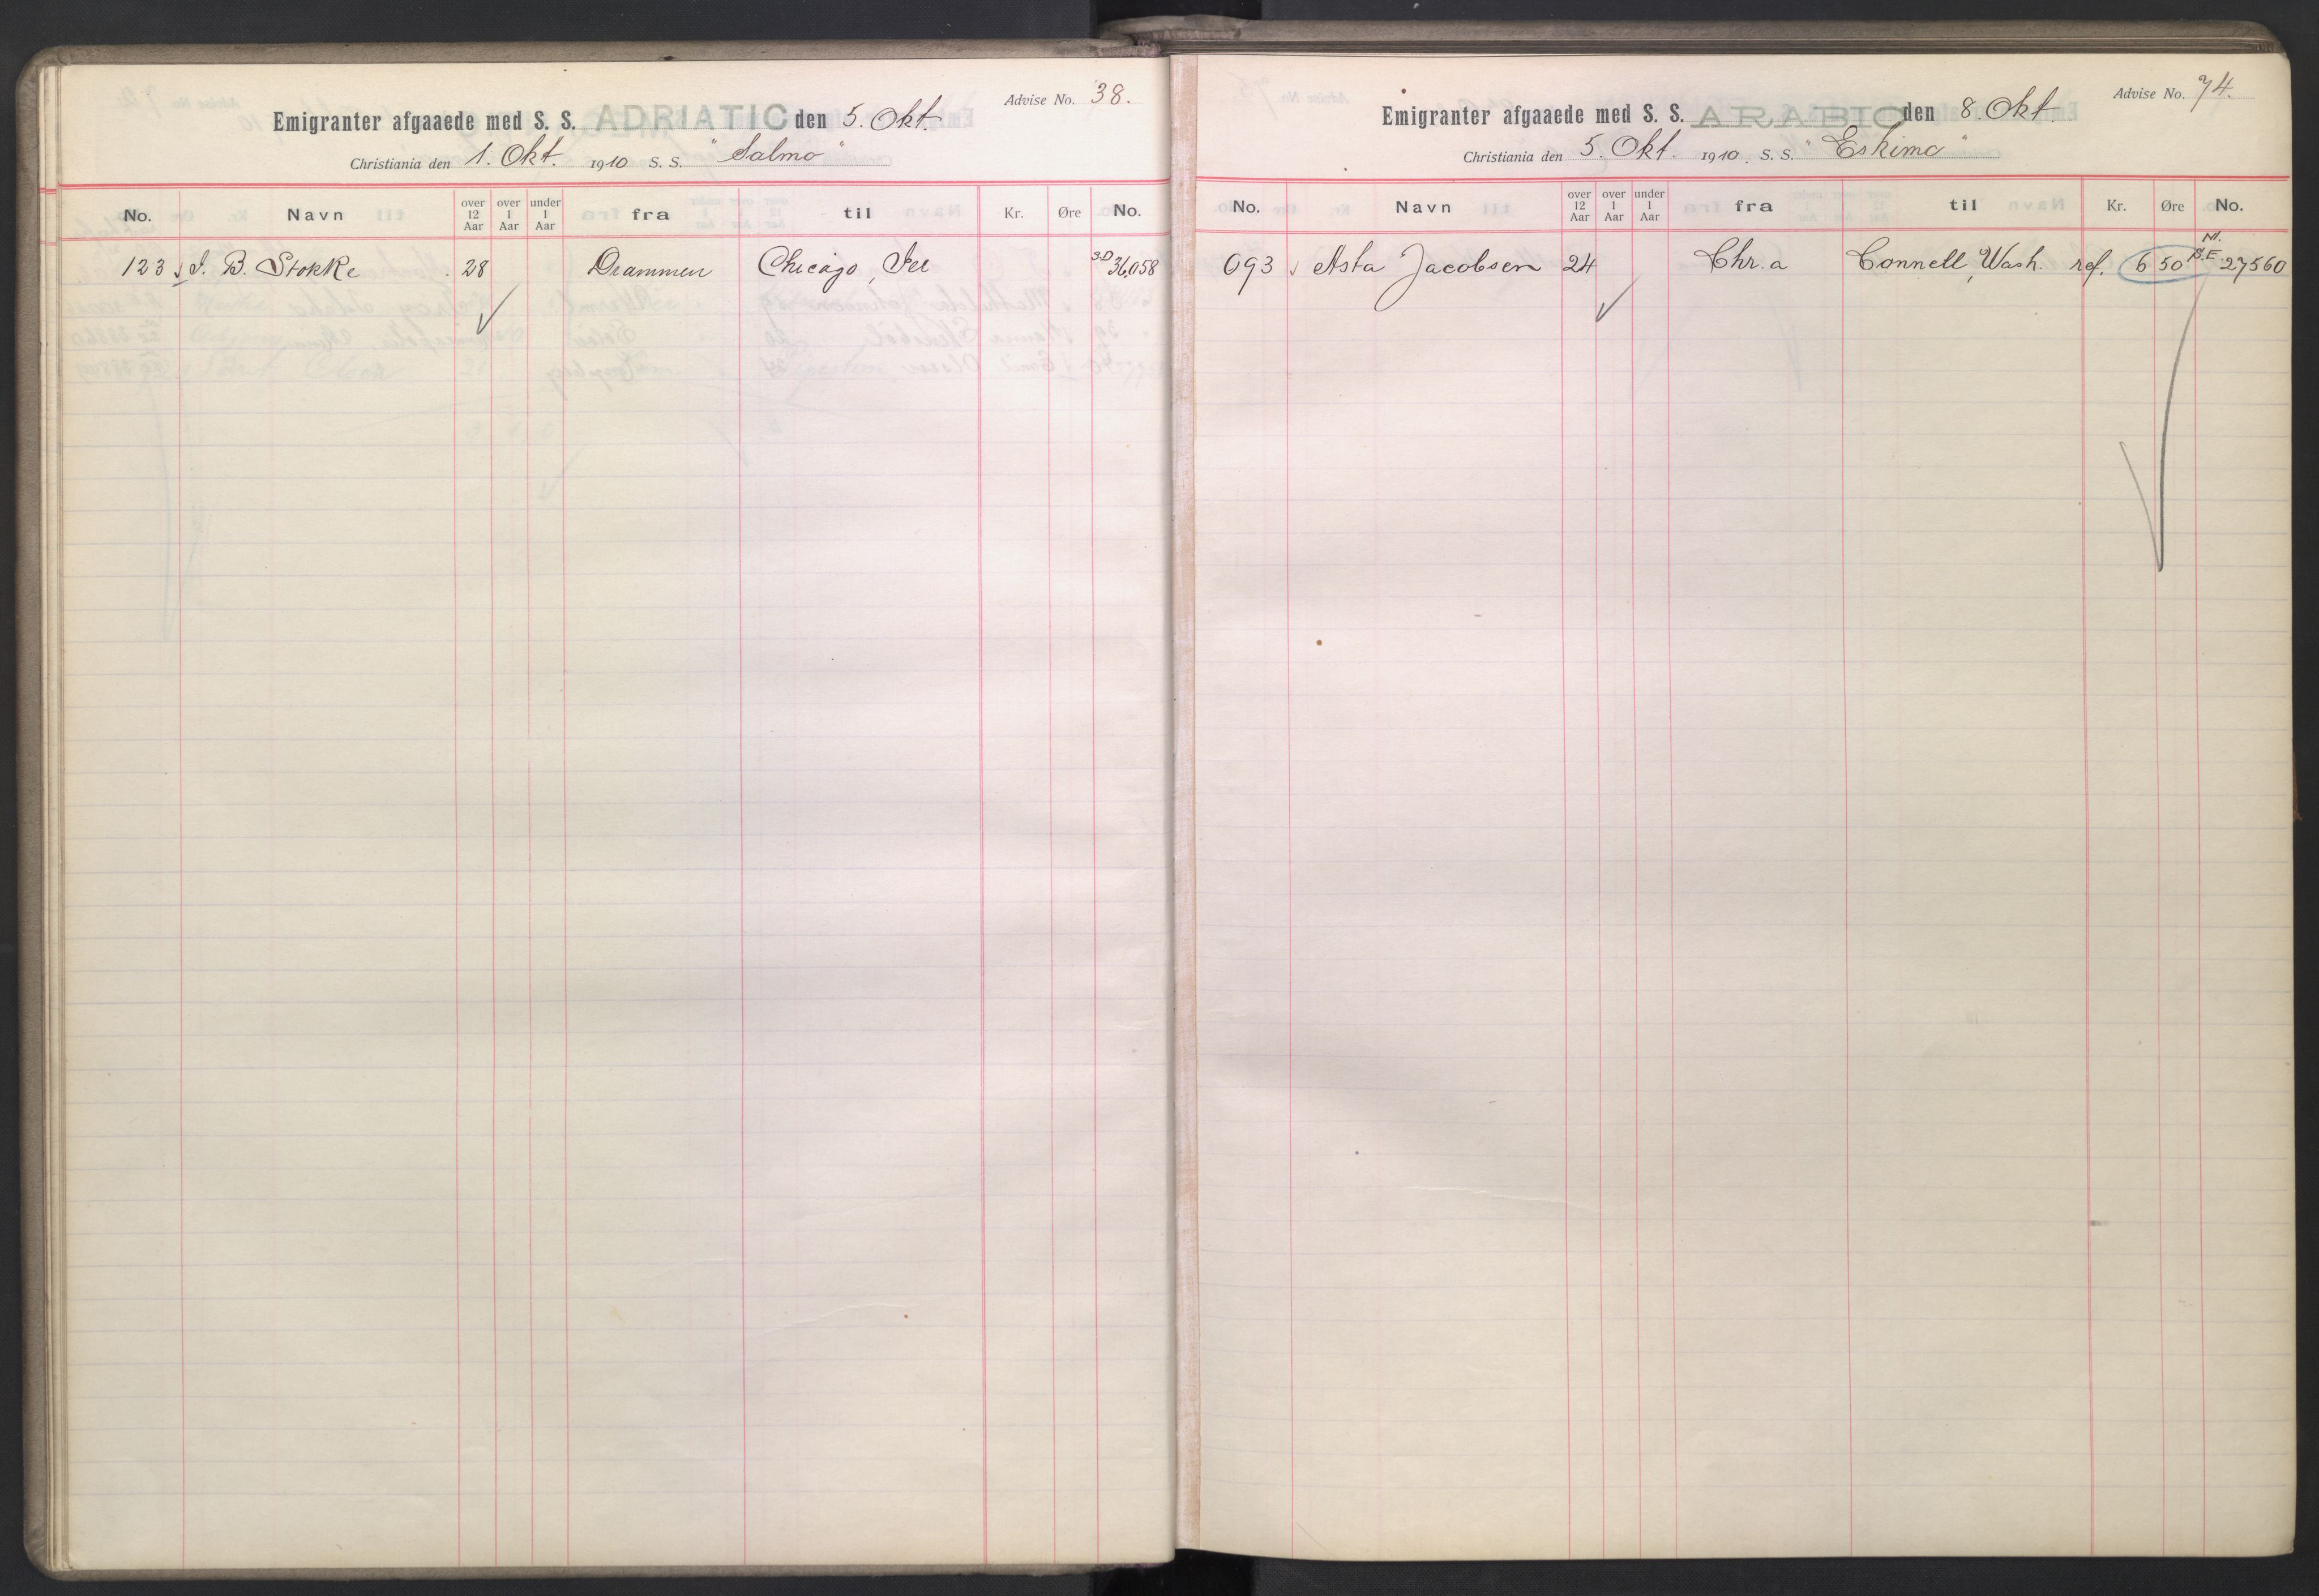 Advise No. 38.
Emigranter afgaaede med S. S. ADRIATIC den 5. Okt.
Christiania den 1. Okt. 1910 S. S. "Salmo"
No. Navn over 12 Aar over 1 Aar under 1 Aar fra til Kr. Øre No.
123 J. B. Stokke 28 Drammen Chicago, Ill S.D 36058
Advise No. 74.
Emigranter afgaaede med S. S. ARABIC den 8. Okt.
Christiania den 5. Okt. 1910. S. S. "Eskimo"
No. Navn over 12 Aar over 1 Aar under 1 Aar fra til Kr. Øre No.
093 Asta Jacobsen 24 Chr.a Connell, Wash. ref. 6 50 27560